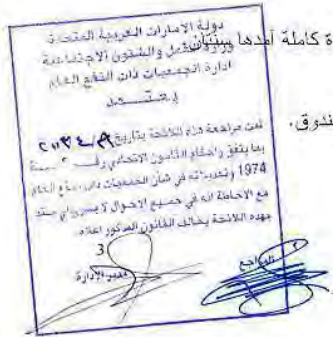 دولة الامارات العربية المتحدة
وزارة العمل والشئون الاجتماعية
ادارة الجمعيات ذات النفع العام
يعتمد
ة كاملة أمدها سنتان
ندوق.
تمت مراجعة هذه اللائحة بتاريخ
بما يتفق واحكام القانون الاتحادي رقم
1974 وتعديلاته في شأن الجمعيات ذات النفع العام
مع الاحاطة انه في جميع الاحوال لا يسري اي بند
بهذه اللائحة يخالف القانون المذكور اعلاه
3
المراجع
مدير الإدارة